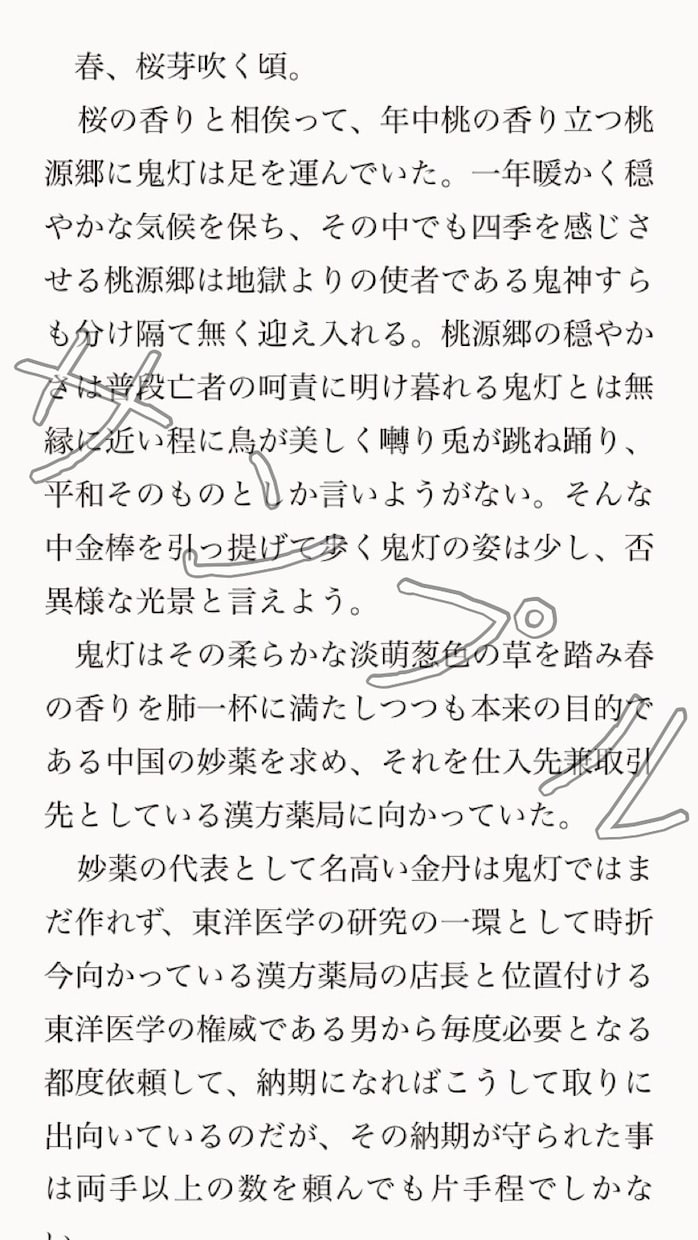 春、桜芽吹く頃。
桜の香りと相俟って、年中桃の香り立つ桃
源郷に鬼灯は足を運んでいた。一年暖かく穏
やかな気候を保ち、その中でも四季を感じさ
せる桃源郷は地獄よりの使者である鬼神すら
も分け隔て無く迎え入れる。桃源郷の穏やか
さは普段亡者の呵責に明け暮れる鬼灯とは無
縁に近い程に鳥が美しく囀り兎が跳ね踊り、
平和そのものとしか言いようがない。そんな
中金棒を引っ提げて歩く鬼灯の姿は少し、否
異様な光景と言えよう。
鬼灯はその柔らかな淡萌葱色の草を踏み春
の香りを肺一杯に満たしつつも本来の目的で
ある中国の妙薬を求め、それを仕入先兼取引
先としている漢方薬局に向かっていた。
妙薬の代表として名高い金丹は鬼灯ではま
だ作れず、東洋医学の研究の一環として時折
今向かっている漢方薬局の店長と位置付ける
東洋医学の権威である男から毎度必要となる
都度依頼して、納期になればこうして取りに
出向いているのだが、その納期が守られた事
は両手以上の数を頼んでも片手程でしかな
い
サンプル